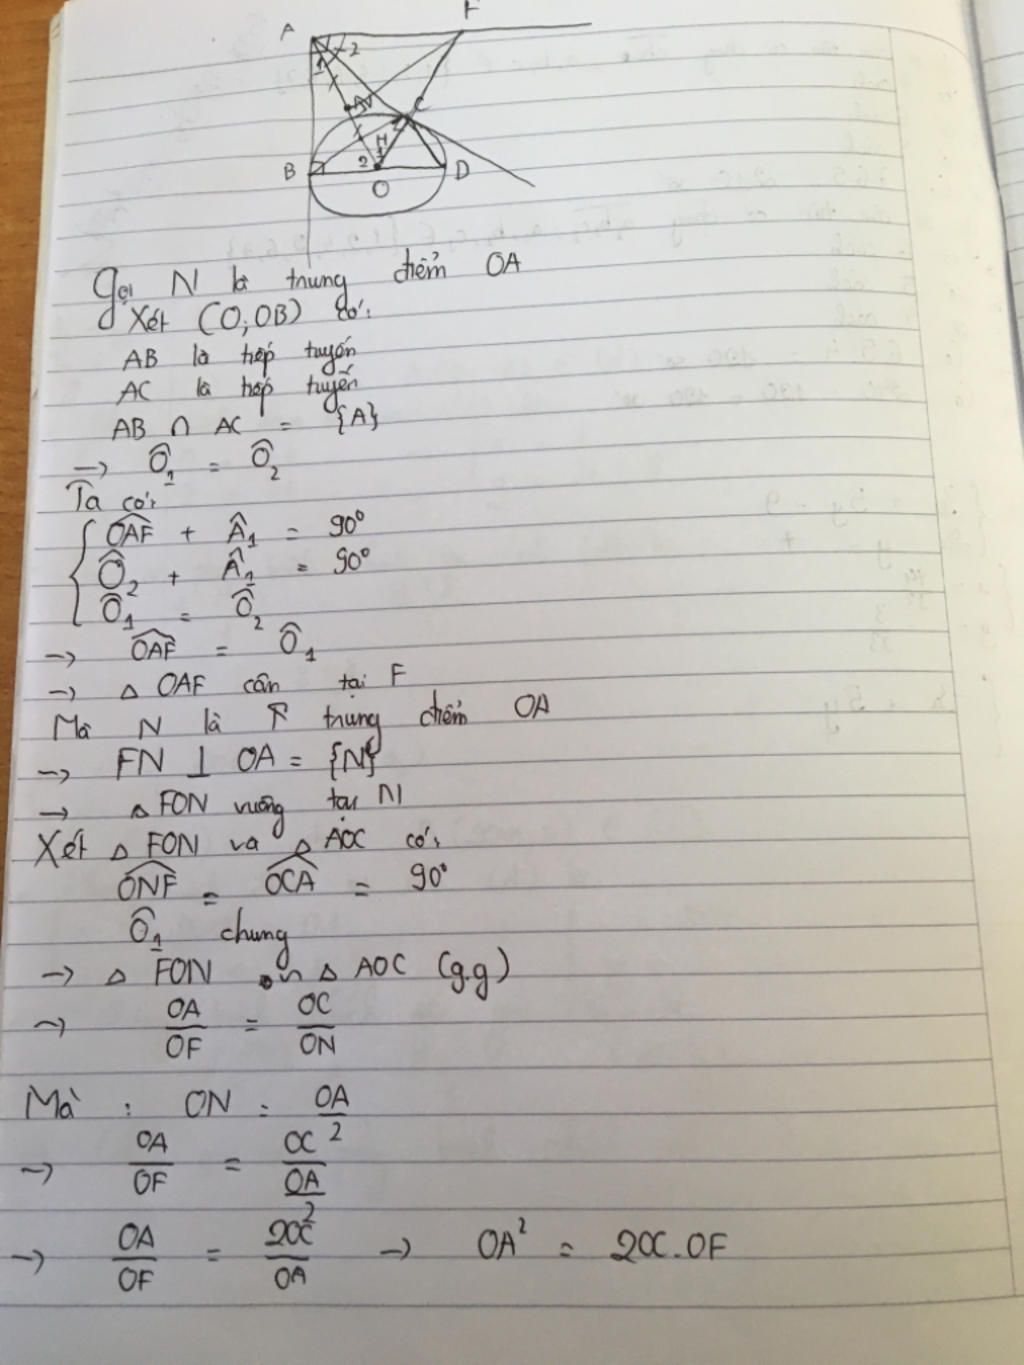 A F
1 2
N C
H
B 2 1 D
O
Gọi N là trung điểm OA
Xét (O;OB) có:
AB là tiếp tuyến
AC là tiếp tuyến
AB ∩ AC = {A}
→ Ô₁ = Ô₂
Ta có:
OAF + Â₁ = 90°
Ô₂ + Â₁ = 90°
Ô₁ = Ô₂
→ OAF = Ô₁
→ △ OAF cân tại F
Mà N là trung điểm OA
→ FN ⊥ OA = {N}
→ △ FON vuông tại N
Xét △ FON và △ AOC có:
ONF = OCA = 90°
Ô₁ chung
→ △ FON ∽ △ AOC (g.g)
→ OA/OF = OC/ON
Mà : ON = OA/2
→ OA/OF = OC/(OA/2)
→ OA/OF = 2OC/OA → OA² = 2OC.OF